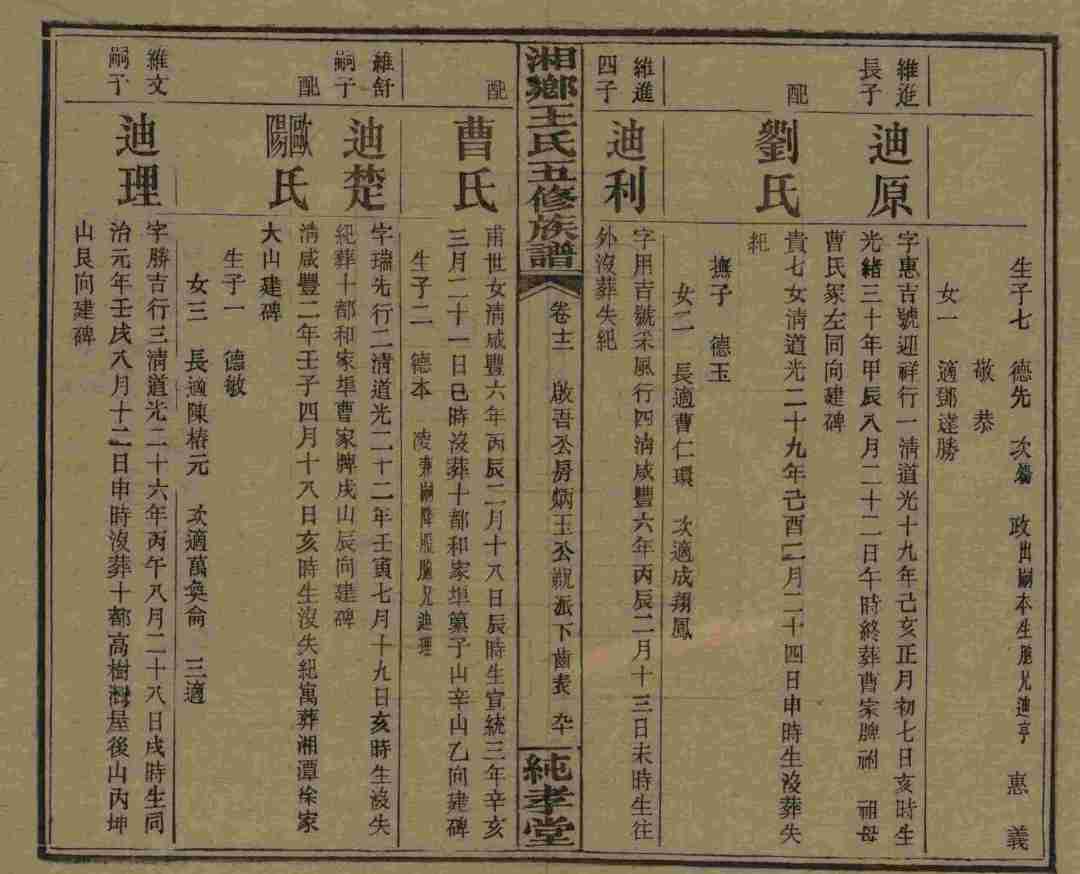 生子七 德先 次 政出嗣本生胞兄迪亨 惠 義
敬 恭
女一 適鄧達勝
維進
長子
迪原
字惠吉號迎祥行一淸道光十九年己亥正月初七日亥時生
光緒三十年甲辰八月二十二日午時終葬曹家牌祔 祖母
曹氏冢左同向建碑
配
劉氏
貴七女淸道光二十九年己酉二月二十四日申時生沒葬失
紀
撫子 德玉
女二 長適曹仁環 次適成翔鳳
維進
四子
迪利
字用吉號采風行四淸咸豐六年丙辰二月十三日未時生往
外沒葬失紀
湘鄉王氏五修族譜
卷十二 啟吾公房炳玉公觀派下齒表 六十
純孝堂
配
曹氏
甫世女淸咸豐六年丙辰二月十八日辰時生宣統三年辛亥
三月二十一日巳時沒葬十都和家埠菓子山辛山乙向建碑
生子二 德本 凌 嗣降服胞兄迪理
維舒
嗣子
迪楚
字瑞先行二淸道光二十二年壬寅七月十九日亥時生沒失
紀葬十都和家埠曹家牌戌山辰向建碑
配
歐陽氏
淸咸豐二年壬子四月十八日亥時生沒失紀寓葬湘潭徐家
大山建碑
生子一 德敏
女三 長適陳椿元 次適萬奐侖 三適
維文
嗣子
迪理
字勝吉行三淸道光二十六年丙午八月二十八日戌時生同
治元年壬戌八月十二日申時沒葬十都高樹灣屋後山丙坤
山艮向建碑